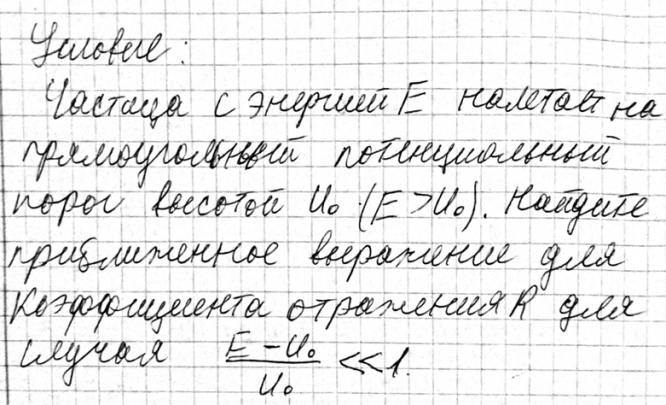 Условие:
Частица с энергией E налетает на
прямоугольный потенциальный
порог высотой U₀ (E>U₀). Найдите
приближенное выражение для
коэффициента отражения R для
случая (E-U₀)/U₀ ≪ 1.